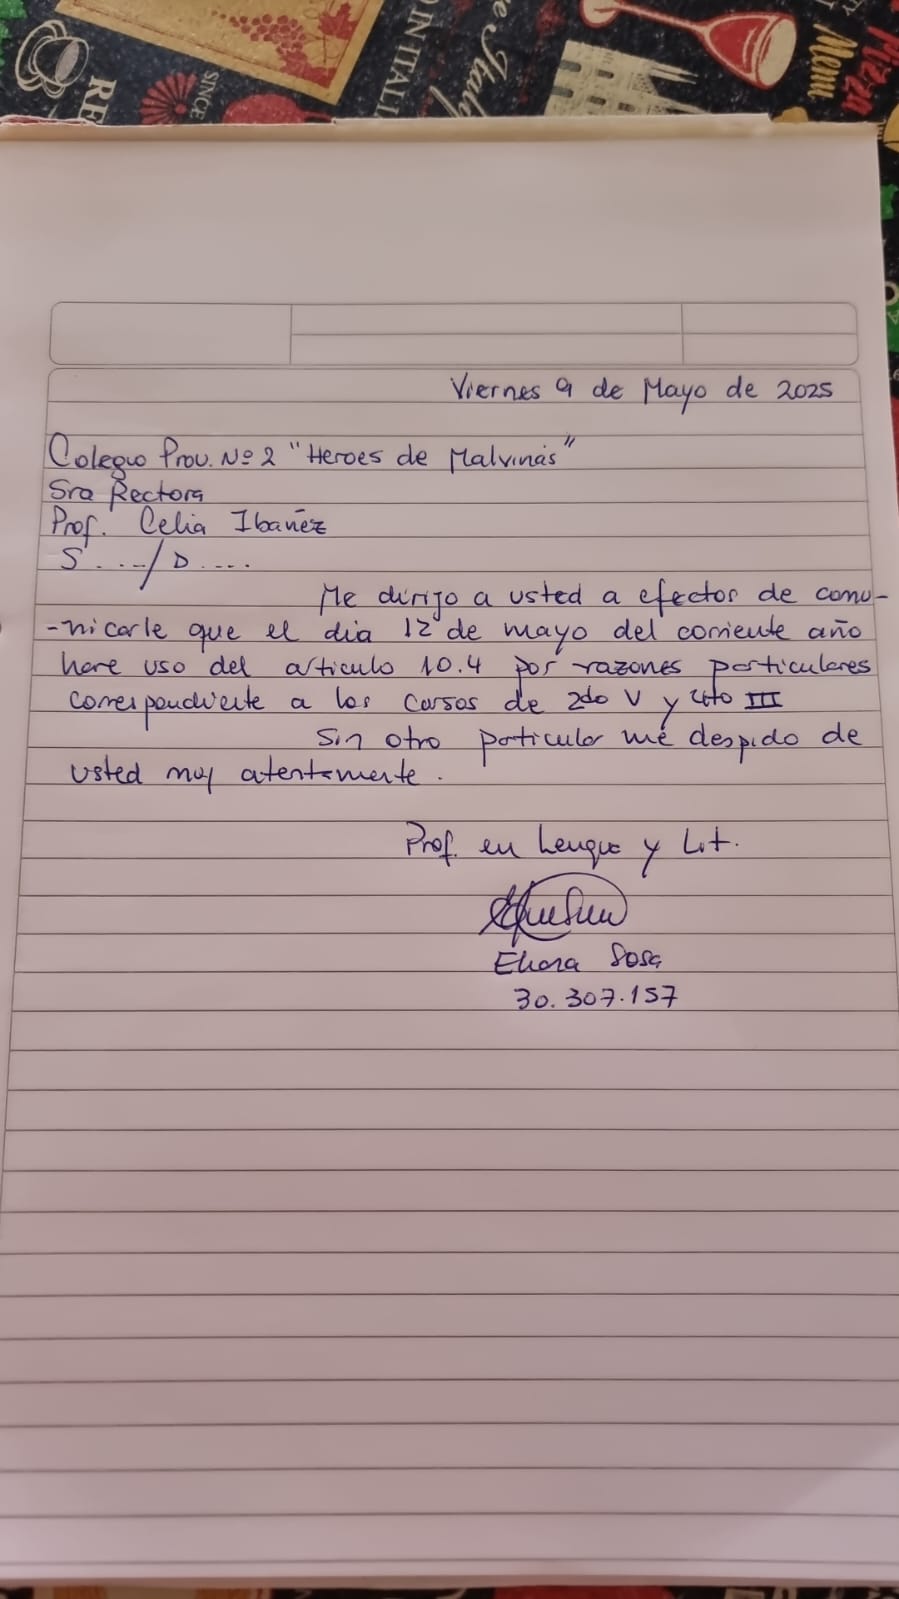 RE
SINCE
O IN ITALI
Italy
Menu
Pizza
Viernes 9 de Mayo de 2025
Colegio Prov. Nº 2 "Heroes de Malvinas"
Sra Rectora
Prof. Celia Ibañez
S . . . / D . . . .
Me dirijo a usted a efector de comu-
-nicarle que el dia 12 de mayo del corriente año
hare uso del articulo 10.4 por razones particulares
correspondiente a los cursos de 2do V y 4to III
Sin otro particular me despido de
usted muy atentamente.
Prof. en Lengua y Lit.
Eliana Sosa
30.307.157